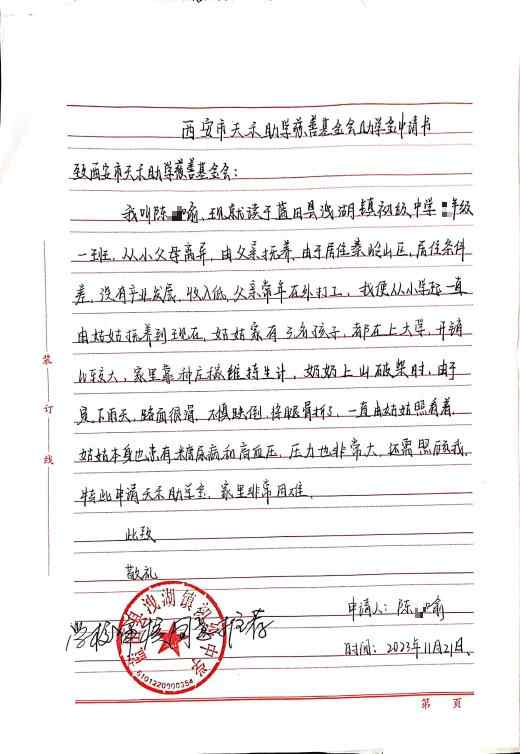 西安市天禾助学慈善基金会助学金申请书
致西安市天禾助学慈善基金会:
我叫陈 瑜、现就读于蓝田县洩湖镇初级中学 年级
一班,从小父母离异,由父亲抚养,由于居住秦岭山区,居住条件
差,没有产业发展,收入低,父亲常年在外打工,我便从小学起一直
由姑姑抚养到现在,姑姑家有三名孩子,都在上大学,开销
比较大,家里靠种庄稼维持生计,奶奶上山破柴时,由于
是下雨天,路面很滑,不慎跌倒,将腿骨折了,一直由姑姑照看着,
姑姑本身也患有糖尿病和高血压,压力也非常大,还需照顾我,
特此申请天禾助学金,家里非常困难。
此致
敬礼
学校审核同意推荐
蓝田县洩湖镇初级中学
6101220000354
申请人:陈 瑜
时间:2023年11月21日、
装
订
线
第 页